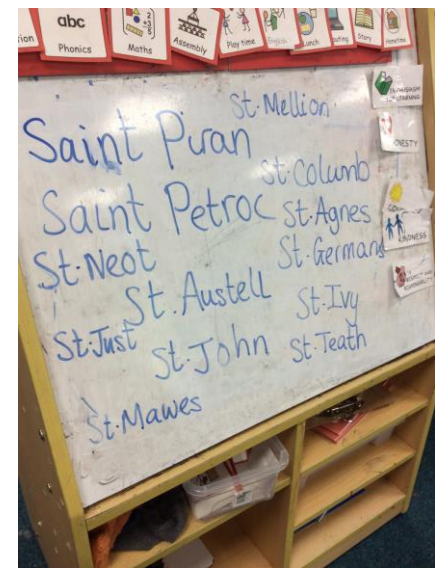 abc
Phonics
Maths
Assembly
Play time
English
Lunch
Story
Hometime
St. Mellion
Saint Piran
St. Columb
Saint Petroc
St. Agnes
St. Neot
St. Germans
St. Austell
St. Ivy
St. Just
St. John
St. Teath
St. Mawes
KINDNESS